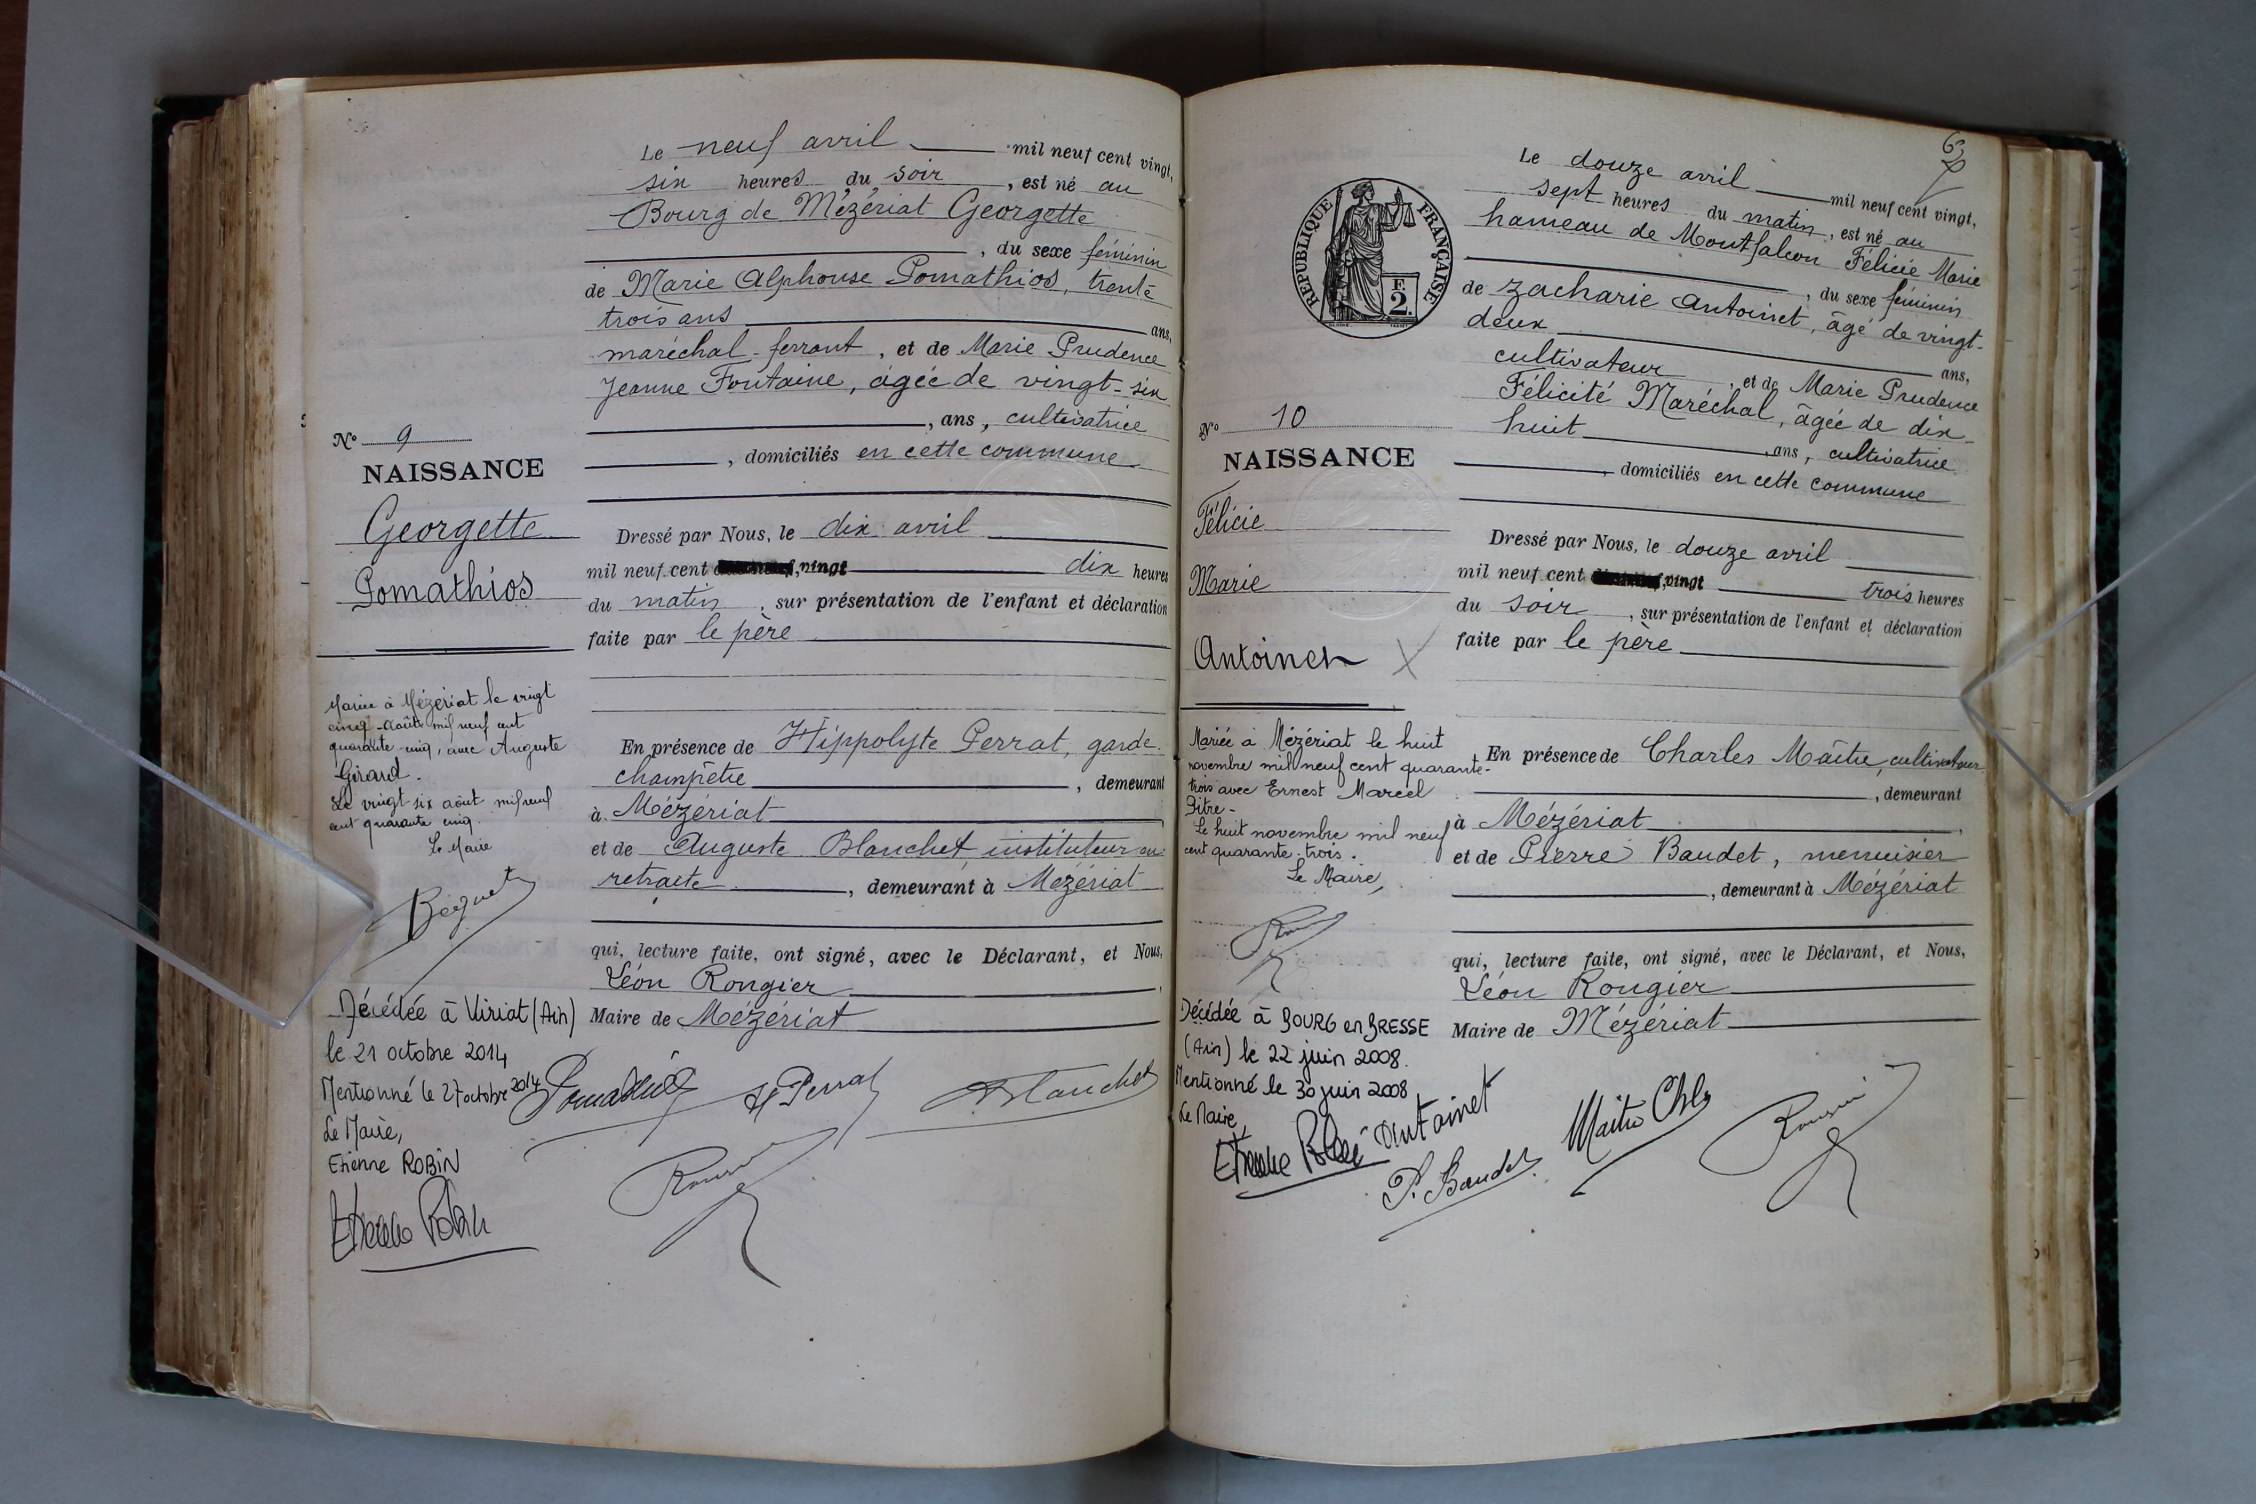 Le neuf avril mil neuf cent vingt,
six heures du soir, est né au
Bourg de Mézériat Georgette
, du sexe féminin
de Marie Alphonse Pomathios, trente
trois ans ans,
maréchal-ferrant, et de Marie Prudence
Jeanne Fontaine, âgée de vingt-six
, ans, cultivatrice
, domiciliés en cette commune
N° 9
NAISSANCE
Georgette
Pomathios
Dressé par Nous, le dix avril
mil neuf cent vingt dix heures
du matin, sur présentation de l'enfant et déclaration
faite par le père
Mariée à Mézériat le vingt
cinq août mil neuf cent
quarante-cinq, avec Auguste
Girard.
Le vingt six août mil neuf
cent quarante cinq.
Le Maire
En présence de Hippolyte Perrat, garde-
champêtre, demeurant
à Mézériat,
et de Auguste Blanchet, instituteur en
retraite, demeurant à Mézériat
qui, lecture faite, ont signé, avec le Déclarant, et Nous,
Léon Rongier,
Maire de Mézériat
Décédée à Viriat (Ain)
le 21 octobre 2014
Mentionné le 27 octobre 2014
Le Maire,
Etienne ROBIN
Etienne Robin
Pomathios
H Perrat
A Blanchet
RÉPUBLIQUE FRANÇAISE
F.
2.
Le douze avril mil neuf cent vingt,
sept heures du matin, est né au
hameau de Montfalcon Félicie Marie
, du sexe féminin
de Zacharie Antoinet, âgé de vingt-
deux ans,
cultivateur, et de Marie Prudence
Félicité Maréchal, âgée de dix-
huit ans, cultivatrice
, domiciliés en cette commune
N° 10
NAISSANCE
Félicie
Marie
Antoinet
Dressé par Nous, le douze avril
mil neuf cent vingt trois heures
du soir, sur présentation de l'enfant et déclaration
faite par le père
Mariée à Mézériat le huit
novembre mil neuf cent quarante-
trois avec Ernest Marcel
Pitre-
Le huit novembre mil neuf
cent quarante-trois.
Le Maire,
En présence de Charles Maître, cultivateur
, demeurant
à Mézériat,
et de Pierre Baudet, menuisier
, demeurant à Mézériat
qui, lecture faite, ont signé, avec le Déclarant, et Nous,
Léon Rongier
Maire de Mézériat
Décédée à BOURG en BRESSE
(Ain) le 22 juin 2008.
Mentionné le 30 juin 2008
Le Maire,
Antoinet
P. Baudet
Maître Chles